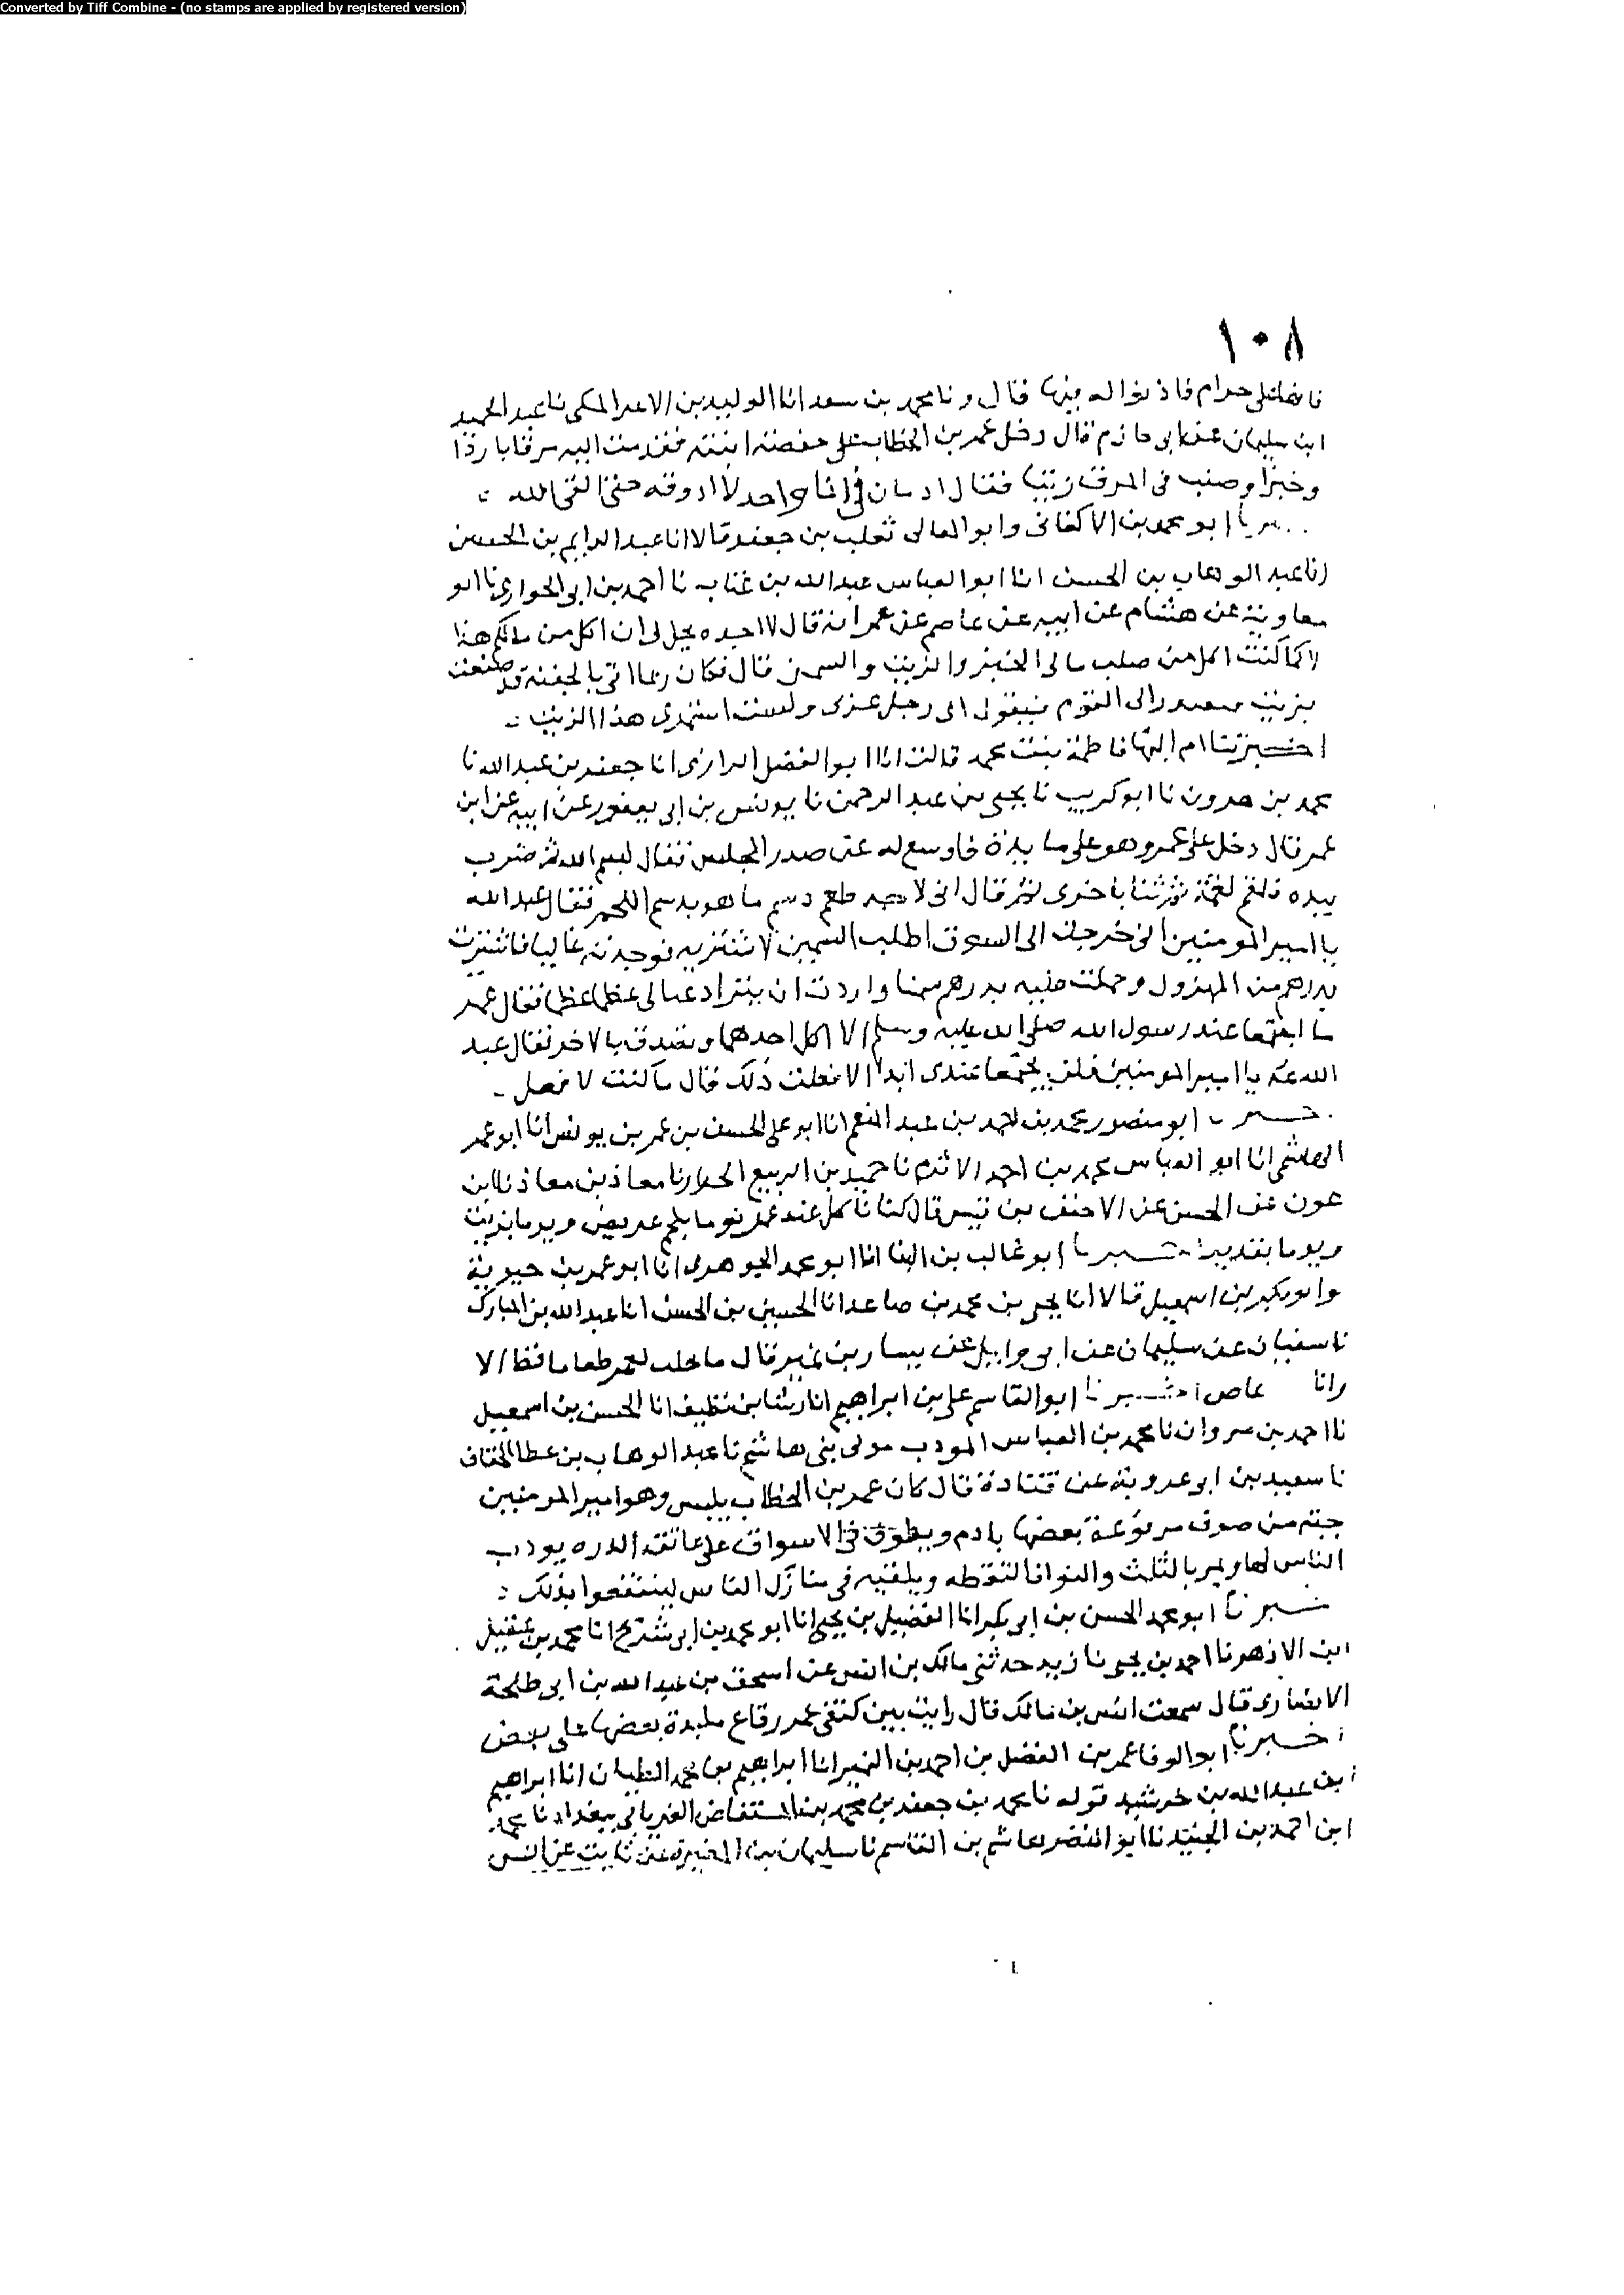 Converted by Tiff Combine - (no stamps are applied by registered version)
١٠٨
فانها على حرام فاذنوا له فيها قال ونا محمد بن سعد انا الوليد بن الاغر المكى نا عبد الحميد
ابن سليمان عن ابى حازم قال دخل عمر بن الخطاب على حفصة ابنته فقدمت اليه مرقا باردا
وخبزا وصبت فى المرق زيتا فقال ادمان فى انا واحد لا اذوقه حتى القى الله
ابو محمد بن الاكفانى وابو المعالى ثعلب بن جعفر قالا انا عبد الدايم بن الحسن
انا عبد الوهاب بن الحسن انا ابو العباس عبد الله بن عتاب نا احمد بن ابى الحوارى نا ابو
معاوية عن هشام عن ابيه عن عاصم عن عمر انه قال لا اجده يحل لى ان اكل من مالكم هذا
الا كما كنت اكل من صلب مالى الخبز والزيت والسمن قال فكان ربما اتى بالجفنة قد صنعت
بزيت فيعتذر الى القوم فيقول انى رجل عربى ولست استمرى هذا الزيت
اخبرتنا ام البها فاطمة بنت محمد قالت انا ابو الفضل الرازى انا جعفر بن عبد الله نا
محمد بن هرون نا ابو كريب نا يحيى بن عبد الرحمن نا يونس بن ابى يعفور عن ابيه عن ابن
عمر قال دخل على عمر وهو على مايدة فاوسع له عن صدر المجلس فقال بسم الله ثم ضرب
بيده فلقم لقمة ثم ثنا باخرى ثم قال انى لاجد طعم دسم ما هو بدسم اللحم فقال عبد الله
يا امير المومنين انى خرجت الى السوق اطلب السمين لاشتريه فوجدته غاليا فاشتريت
بدرهم من المهزول وحملت عليه بدرهم سمنا واردت ان يتراد عيالى عظما عظما فقال عمر
ما اجتمعا عند رسول الله صلى الله عليه وسلم الا اكل احدهما وتصدق بالاخر فقال عبد
الله عد يا امير المومنين فلن يجتمعا عندى ابدا الا فعلت ذلك قال ما كنت لافعل
ابو منصور محمد بن احمد بن عبد المنعم انا ابو على الحسن بن عمر بن يونس انا ابو عمر
الهاشمى انا ابو العباس محمد بن احمد الاثرم نا حميد بن الربيع الخزاز نا معاذ بن معاذ نا ابن
عون عن الحسن عن الاحنف بن قيس قال كنا ناكل عند عمر يوما بلحم غريض ويوما بزيت
ويوما بقديد اخبرنا ابو غالب بن البنا انا ابو محمد الجوهرى انا ابو عمر بن حيوية
وابو بكر بن اسمعيل قالا انا يحيى بن محمد بن صاعد انا الحسين بن الحسن انا عبد الله بن المبارك
نا سفيان عن سليمان عن ابى وايل عن يسار بن نمير قال ما نخلت لعمر طعاما قط الا
وانا عاص اخبرنا ابو القاسم على بن ابراهيم انا رشا بن نظيف انا الحسن بن اسمعيل
نا احمد بن مروان نا محمد بن العباس المودب مولى بنى هاشم نا عبد الوهاب بن عطا الخفاف
نا سعيد بن ابو عروبة عن قتادة قال كان عمر بن الخطاب يلبس وهو امير المومنين
جبة من صوف مرقوعة بعضها بادم ويطوف فى الاسواق على عاتقه الدره يودب
الناس بها ويمر بالنكث والنوا فالتقطه ويلقيه فى منازل الناس لينتفعوا بذلك
اخبرنا ابو محمد الحسن بن ابى بكر انا الفضيل بن يحيى انا ابو محمد بن ابى شريح انا محمد بن عقيل
ابن الازهر نا احمد بن يحيى نا زيد حدثنى مالك بن انس عن اسحق بن عبد الله بن ابى طلحة
الانصارى قال سمعت انس بن مالك قال رايت بين كتفى عمر رقاع ملبدة بعضها على بعض
اخبرنا ابو الوفا عمر بن الفضل بن احمد بن المميز انا ابراهيم بن محمد الطيان انا ابراهيم
ابن عبد الله بن خرشيد قوله نا محمد بن جعفر بن محمد بن المستفاض الفريابى ببغداد نا محمد
ابن احمد بن الجنيد نا ابو النضر هاشم بن القاسم نا سليمان بن المغيرة عن ثابت عن انس